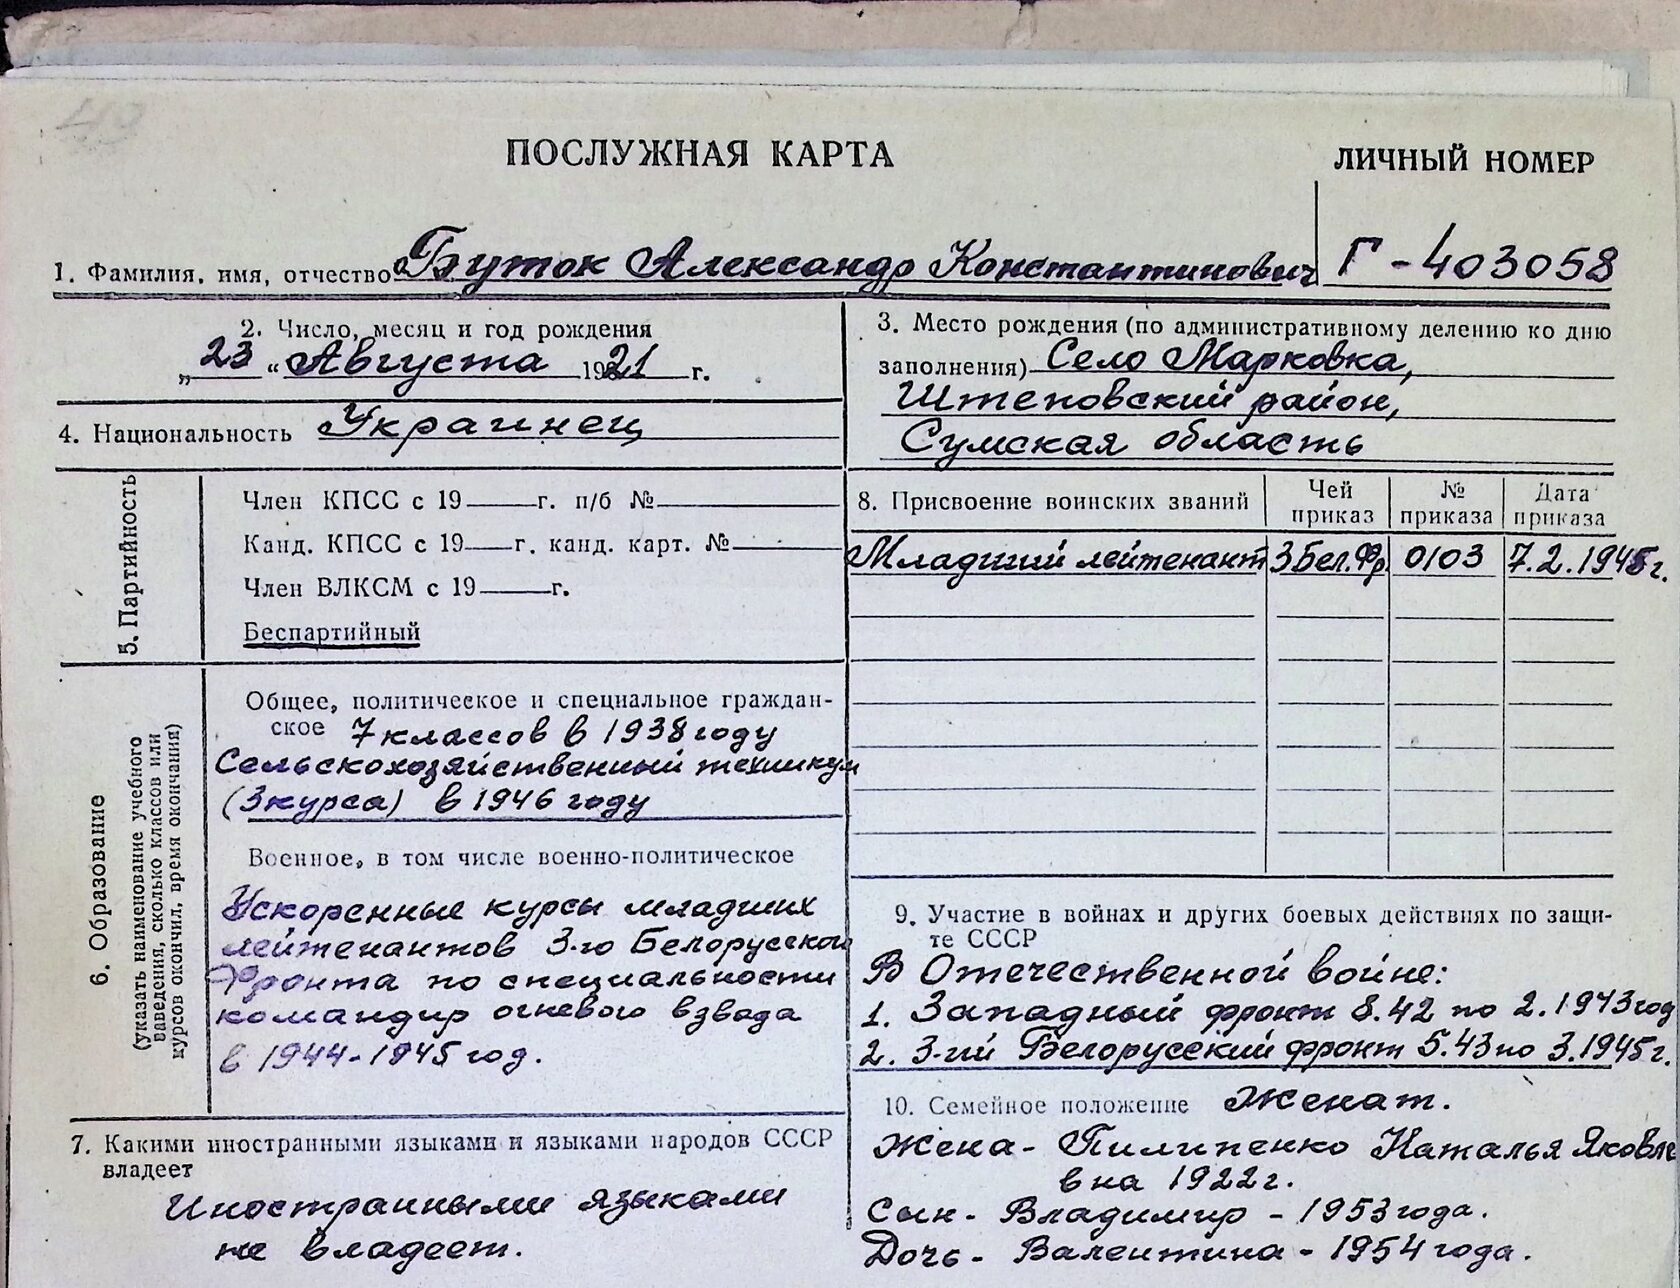 49
ПОСЛУЖНАЯ КАРТА
ЛИЧНЫЙ НОМЕР
1. Фамилия, имя, отчество Буток Александр Константинович
Г-403058
2. Число, месяц и год рождения
„23“ Августа 1921 г.
4. Национальность Украинец
3. Место рождения (по административному делению ко дню
заполнения) Село Марковка,
Штеповский район,
Сумская область
5. Партийность
Член КПСС с 19 г. п/б №
Канд. КПСС с 19 г. канд. карт. №
Член ВЛКСМ с 19 г.
Беспартийный
8. Присвоение воинских званий
Чей приказ
№ приказа
Дата приказа
Младший лейтенант 3 Бел. Фр. 0103 7.2.1945г.
6. Образование
(указать наименование учебного
заведения, сколько классов или
курсов окончил, время окончания)
Общее, политическое и специальное граждан-
ское 7 классов в 1938 году
Сельскохозяйственный техникум
(3 курса) в 1946 году
Военное, в том числе военно-политическое
Ускоренные курсы младших
лейтенантов 3-го Белорусского
Фронта по специальности
командир огневого взвода
в 1944-1945 год.
7. Какими иностранными языками и языками народов СССР
владеет
Иностранными языками
не владеет.
9. Участие в войнах и других боевых действиях по защи-
те СССР
В Отечественной войне:
1. Западный фронт 8.42 по 2.1943 год
2. 3-ий Белорусский фронт 5.43 по 3.1945 г.
10. Семейное положение Женат.
Жена - Пилипенко Наталья Яковле
вна 1922 г.
Сын - Владимир - 1953 года.
Дочь - Валентина - 1954 года.